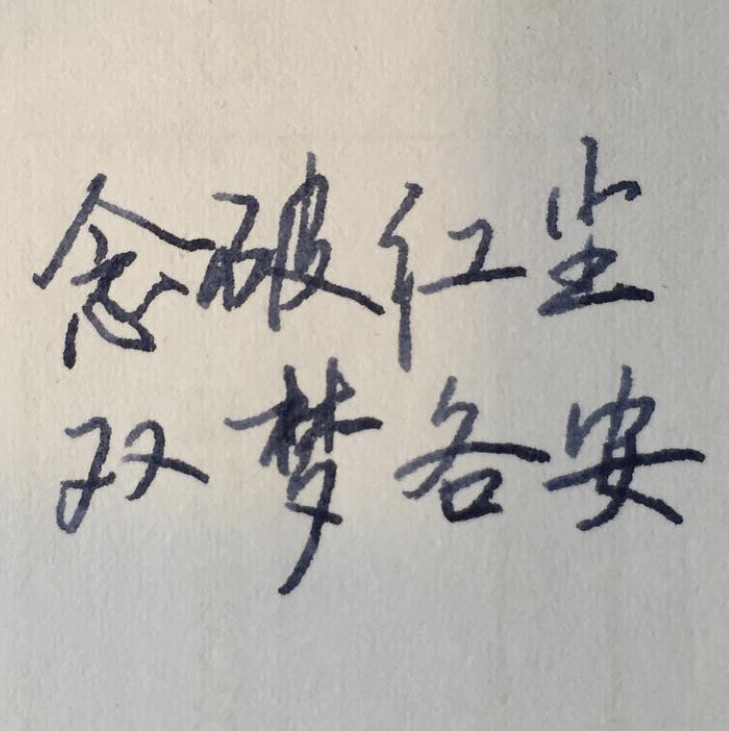 念破红尘
双梦各安